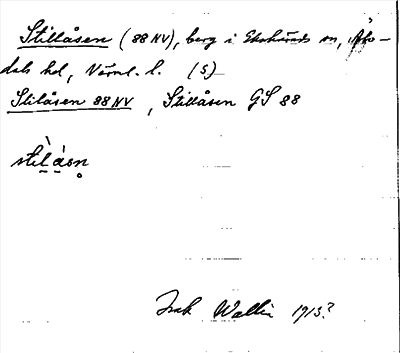 Stillåsen (88 NV), berg i Ekshärads sn, Älv-
dals hd, Värml. l. (S)
Stilåsen 88 NV, Stillåsen GS 88
stìlàsn̥
Isak Wallin 1913?